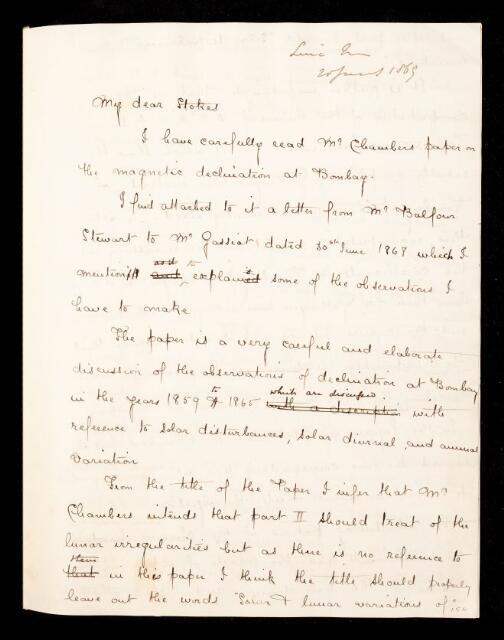 1869
My dear Stokes
I have carefully read Mr Chambers paper on
the magnetic declination at Bombay.
I find attached to it a letter from Mr Balfour
Stewart to Mr Gassiot dated 30th June 1868 which I
mention to explain some of the observations I
have to make
The paper is a very careful and elaborate
discussion of the observations of declination at Bombay
in the years 1859 to 1865 which are discussed with
reference to solar disturbances, solar diurnal, and annual
variation
From the title of the Paper I infer that Mr
Chambers intends that part II should treat of the
lunar irregularities but as there is no reference to
them in this paper I think the title should properly
leave out the words "Solar & lunar variations of